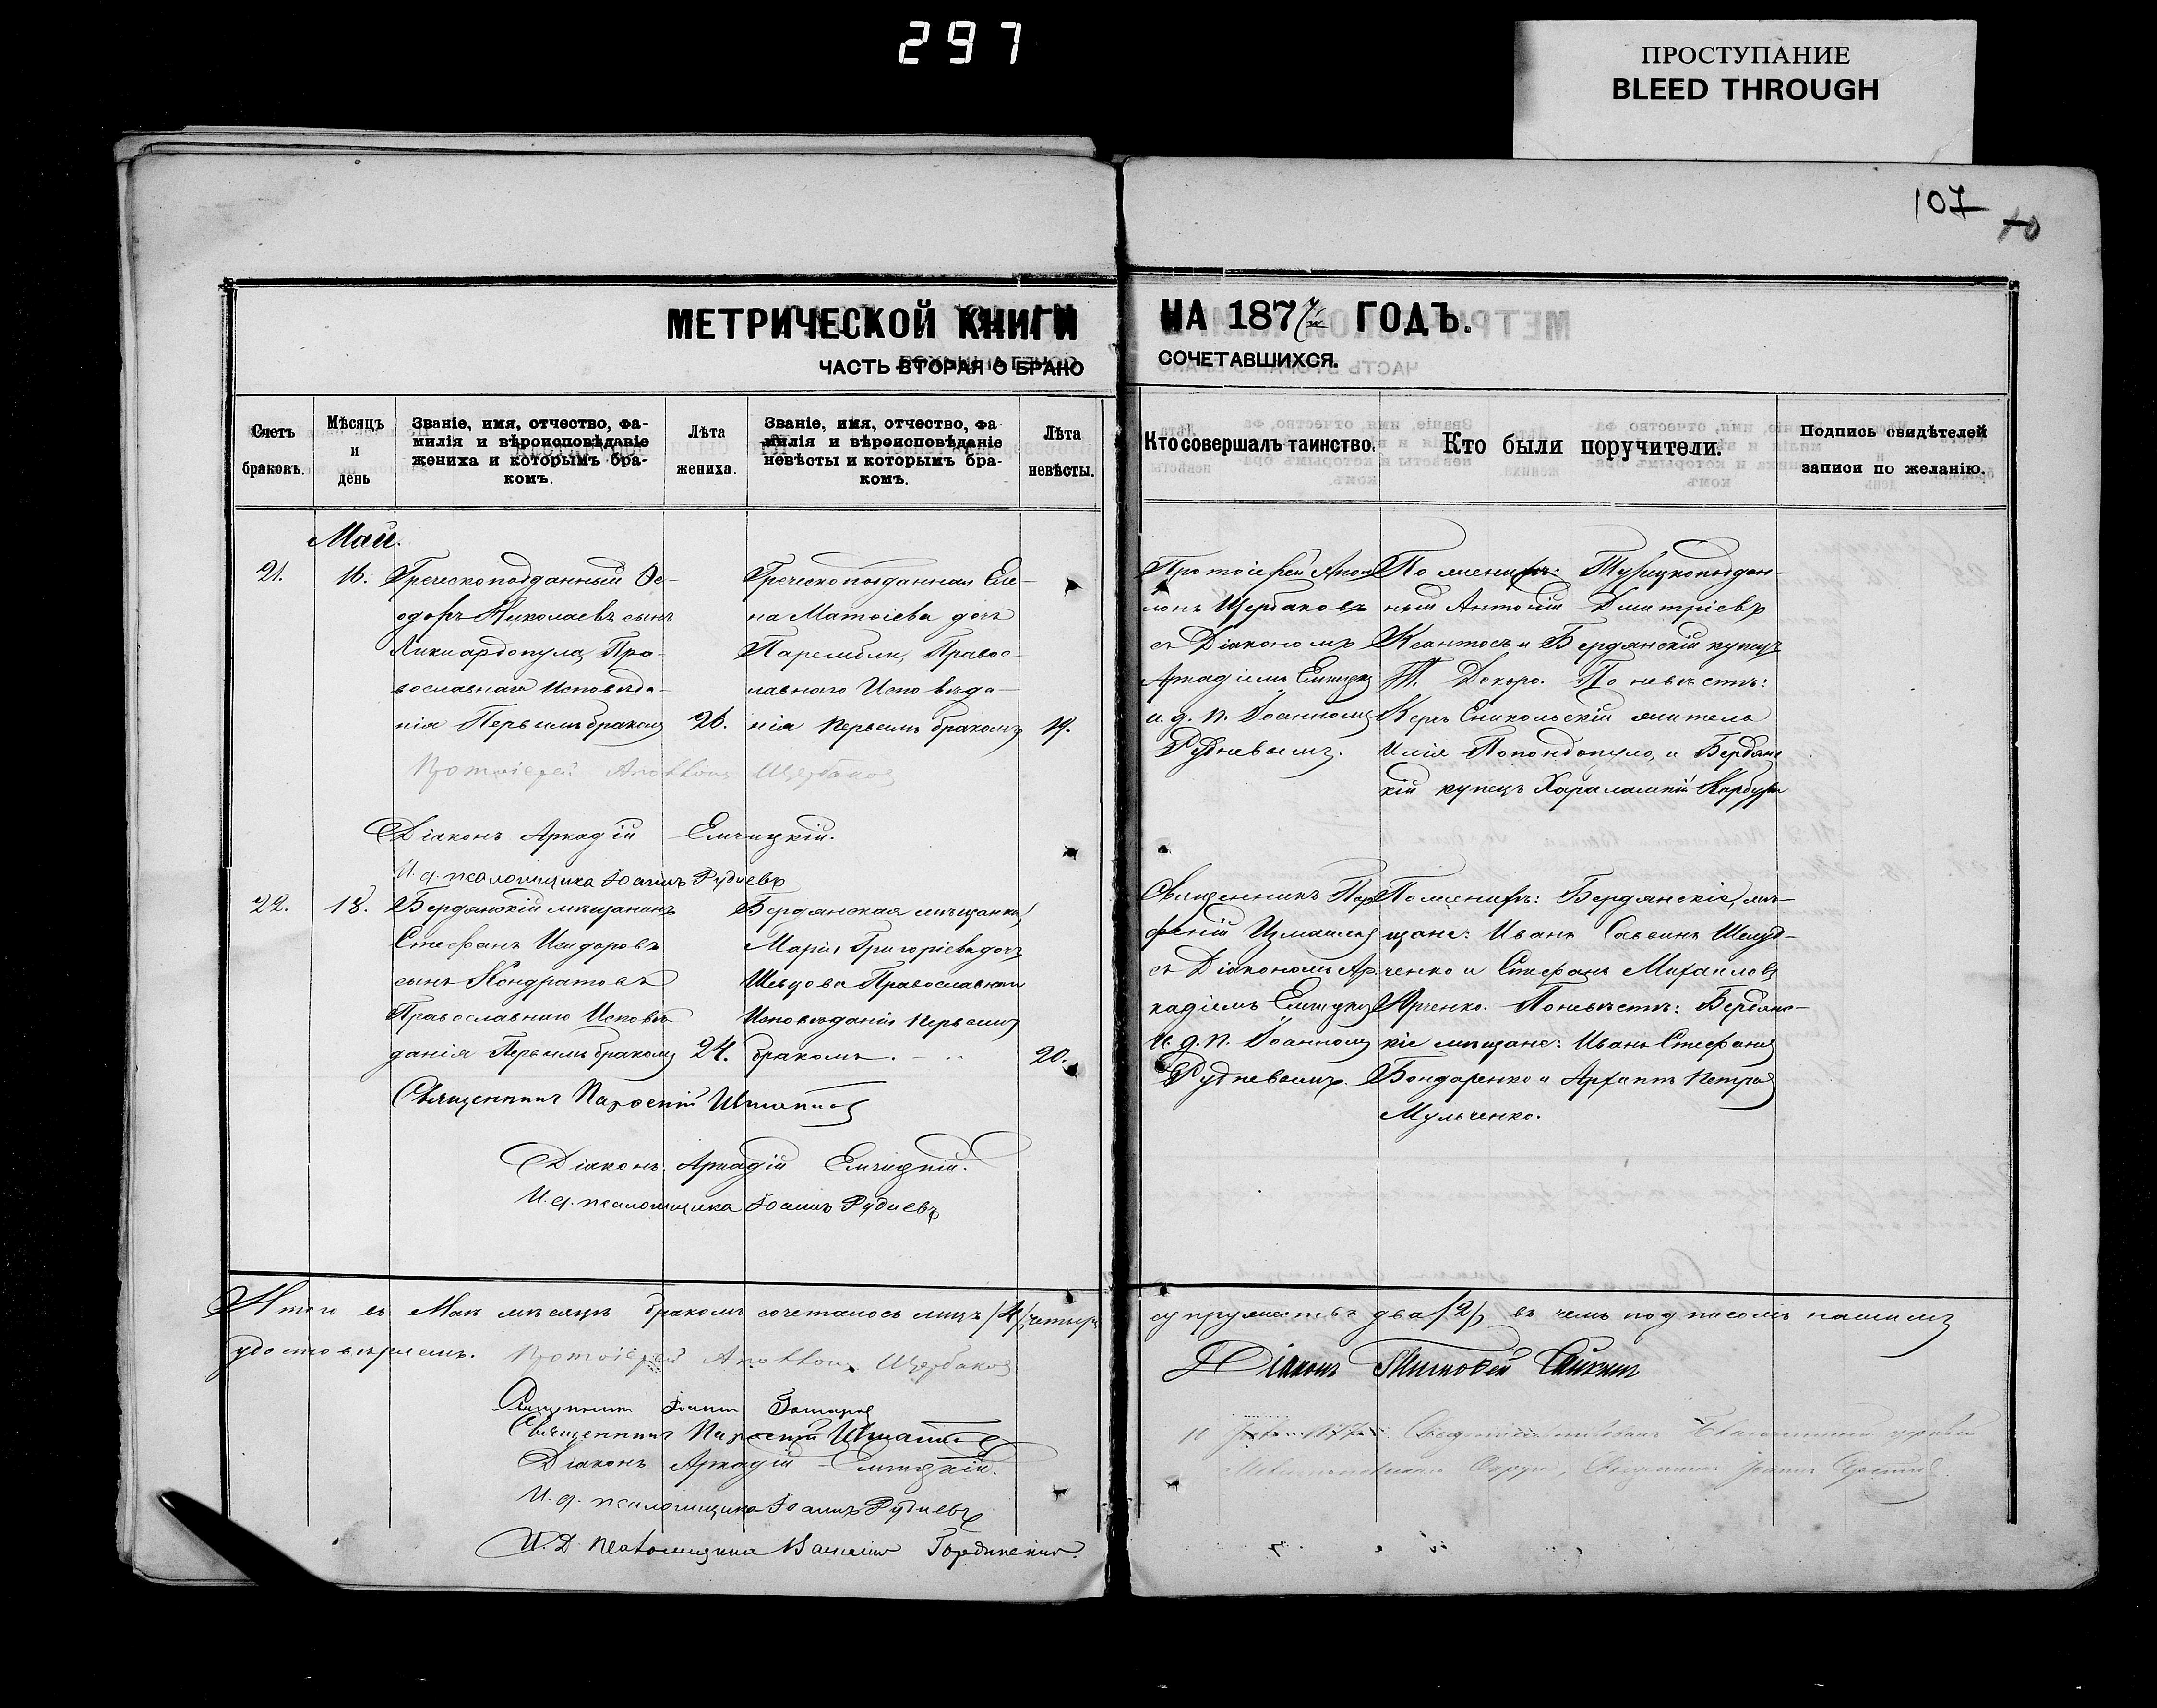 297
ПРОСТУПАНИЕ
BLEED THROUGH
107
МЕТРИЧЕСКОЙ КНИГИ НА 1877 ГОДЪ.
ЧАСТЬ ВТОРАЯ О БРАКО СОЧЕТАВШИХСЯ.
Счетъ браковъ.
Мѣсяцъ и день
Званіе, имя, отчество, фа-
милія и вѣроисповѣданіе
жениха и которымъ бра-
комъ.
Лѣта жениха.
Званіе, имя, отчество, фа
милія и вѣроисповѣданіе
невѣсты и которымъ бра-
комъ.
Лѣта невѣсты.
Кто совершалъ таинство.
Кто были поручители.
Подпись свидѣтелей
записи по желанію.
Май.
21.
16.
Греческоподданный Ѳе-
одоръ Николаевъ сынъ
Ликиардопуло, Пра-
вославнаго Исповѣда-
нія Первымъ бракомъ
26.
Греческоподданная Еле-
на Матѳіева дочь
Правос-
лавнаго Исповѣда-
нія первымъ бракомъ
19.
Протоіерей Апол
лонъ Щербаковъ
съ Діакономъ
Аркадіемъ
и. д. п. Іоанномъ
Рудневымъ.
По женихѣ: Турецкоподдан-
ный Антоній Дмитріевъ
Ксантосъ и Бердянскій купецъ
По невѣстѣ:
Керчь Еникольскій житель
Илія Попондопуло, и Бердянс
кій купецъ Харалампій
Протоіерей Аполлонъ Щербаковъ
Діаконъ Аркадій Емчицкій.
И. д. псаломщика Іоаннъ Рудневъ
22.
18.
Бердянскій мѣщанинъ
Стефанъ Исидоровъ
сынъ Кондратовъ
Православнаго Исповѣ
данія Первымъ бракомъ
24.
Бердянская мѣщанка,
Марія Григоріева дочь
Шевцова Православнаго
Исповѣданія первымъ
бракомъ.
20.
Священникъ Пар
феній
съ Діакономъ Ар
кадіемъ
И. д. п. Іоанномъ
Рудневымъ.
По женихѣ: Бердянскіе, мѣ-
щане: Иванъ Саввинъ
ченко и Стефанъ Михаиловъ
По невѣстѣ: Бердянс-
кіе мѣщане: Иванъ Стефановъ
Бондаренко и Петровъ
Мульченко.
Священникъ Парѳеній
Діаконъ Аркадій Емчицкій.
И. д. псаломщика Іоаннъ Рудневъ
Итого въ Маѣ мѣсяцѣ бракомъ сочеталось лицъ /4/ четыре
супружествъ два /2/, въ чемъ подписомъ нашимъ
удостовѣряемъ.
Протоіерей Аполлонъ Щербаковъ
Діаконъ
Священникъ Іоаннъ
Священникъ Парѳеній
Діаконъ Аркадій Емчицкій.
И. д. псаломщика Іоаннъ Рудневъ
И. Д. псаломщика Василій Гординскій.